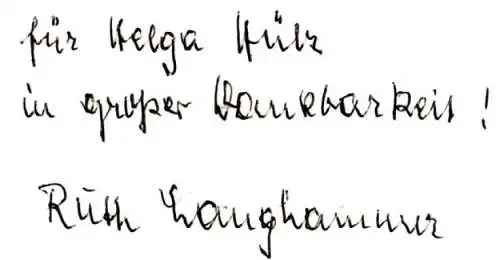 für Helga Hülz
in großer Dankbarkeit!
Ruth Langhammer